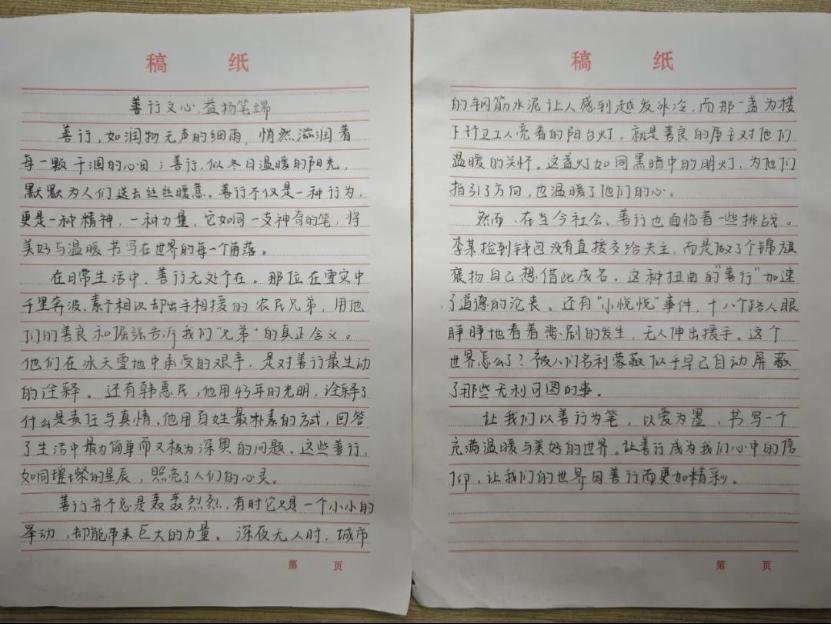 稿 纸
善行文心,益物笔端
善行,如润物无声的细雨,悄然滋润着
每一颗干涸的心田;善行,似冬日温暖的阳光,
默默为人们送去丝丝暖意。善行不仅是一种行为,
更是一种精神,一种力量,它如同一支神奇的笔,将
美好与温暖书写在世界的每一个角落。
在日常生活中,善行无处不在。那位在雪灾中
千里奔波,素不相识却出手相援的农民兄弟,用他
们的善良和倔强告诉我们“兄弟”的真正含义。
他们在冰天雪地中承受的艰辛,是对善行最生动
的诠释。还有韩惠民,他用43年的光明,诠释了
什么是责任与真情,他用百姓最朴素的方式,回答
了生活中最为简单而又极为深奥的问题,这些善行,
如同璀璨的星辰,照亮了人们的心灵。
善行并不总是轰轰烈烈,有时它只是一个小小的
举动,却能带来巨大的力量。深夜无人时,城市
第 页
稿 纸
的钢筋水泥让人感到越发冰冷,而那一盏为楼
下环卫工人亮着的阳台灯,就是善良的房主对他们
温暖的关怀。这盏灯如同黑暗中的明灯,为他们
指引了方向,也温暖了他们的心。
然而,在当今社会,善行也面临着一些挑战。
李某捡到钱包没有直接交给失主,而是做了个锦旗
褒扬自己想借此成名。这种扭曲的“善行”加速
了道德的沦丧。还有“小悦悦”事件,十八个路人眼
睁睁地看着悲剧的发生,无人伸出援手。这个
世界怎么了?被人们名利蒙蔽似乎早已自动屏蔽
了那些无利可图的事。
让我们以善行为笔,以爱为墨,书写一个
充满温暖与美好的世界。让善行成为我们心中的信
仰,让我们的世界因善行而更加精彩。
第 页